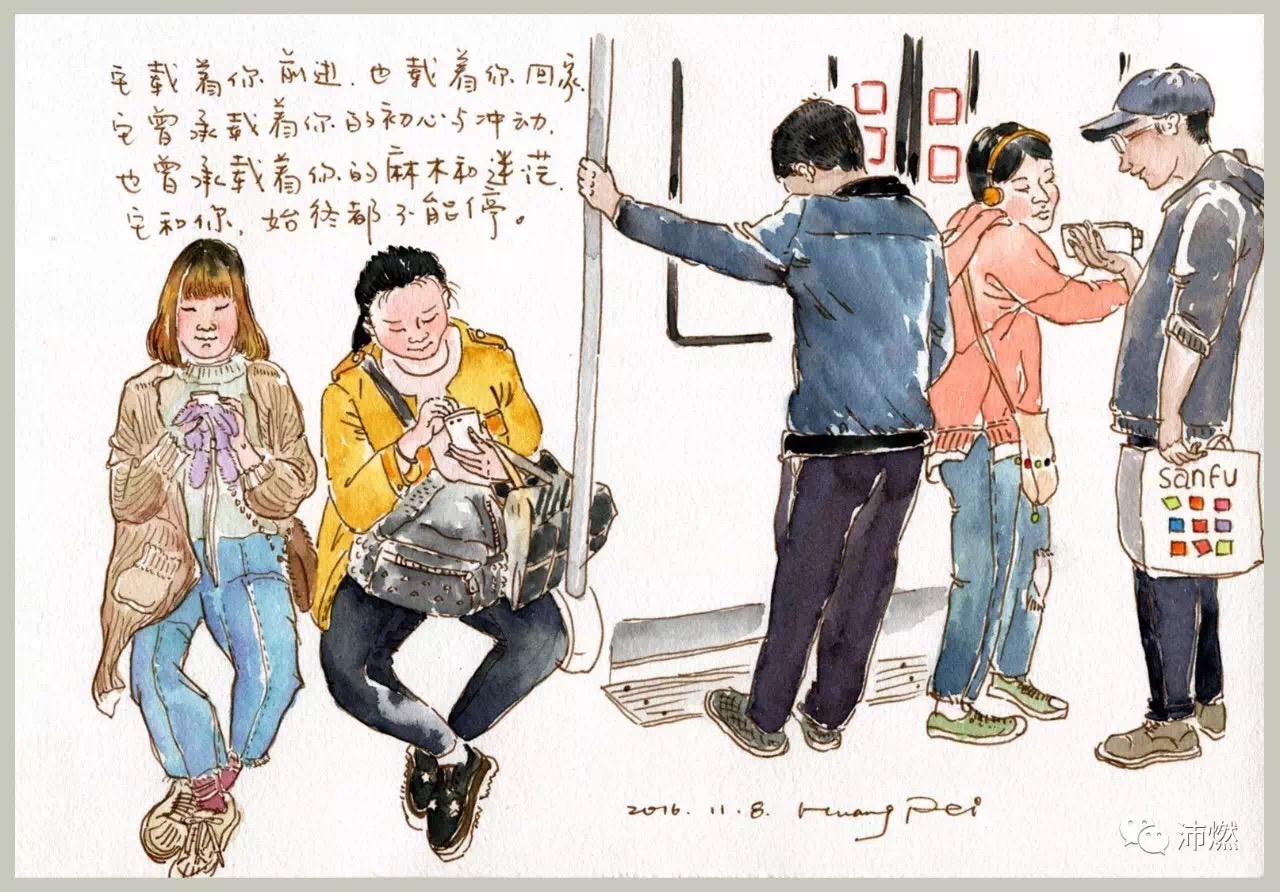 它载着你前进.也载着你回家.
它曾承载着你的初心与冲动.
也曾承载着你的麻木和迷茫.
它和你,始终都不能停。
sanfu
2016.11.8. Huang Pei
沛燃